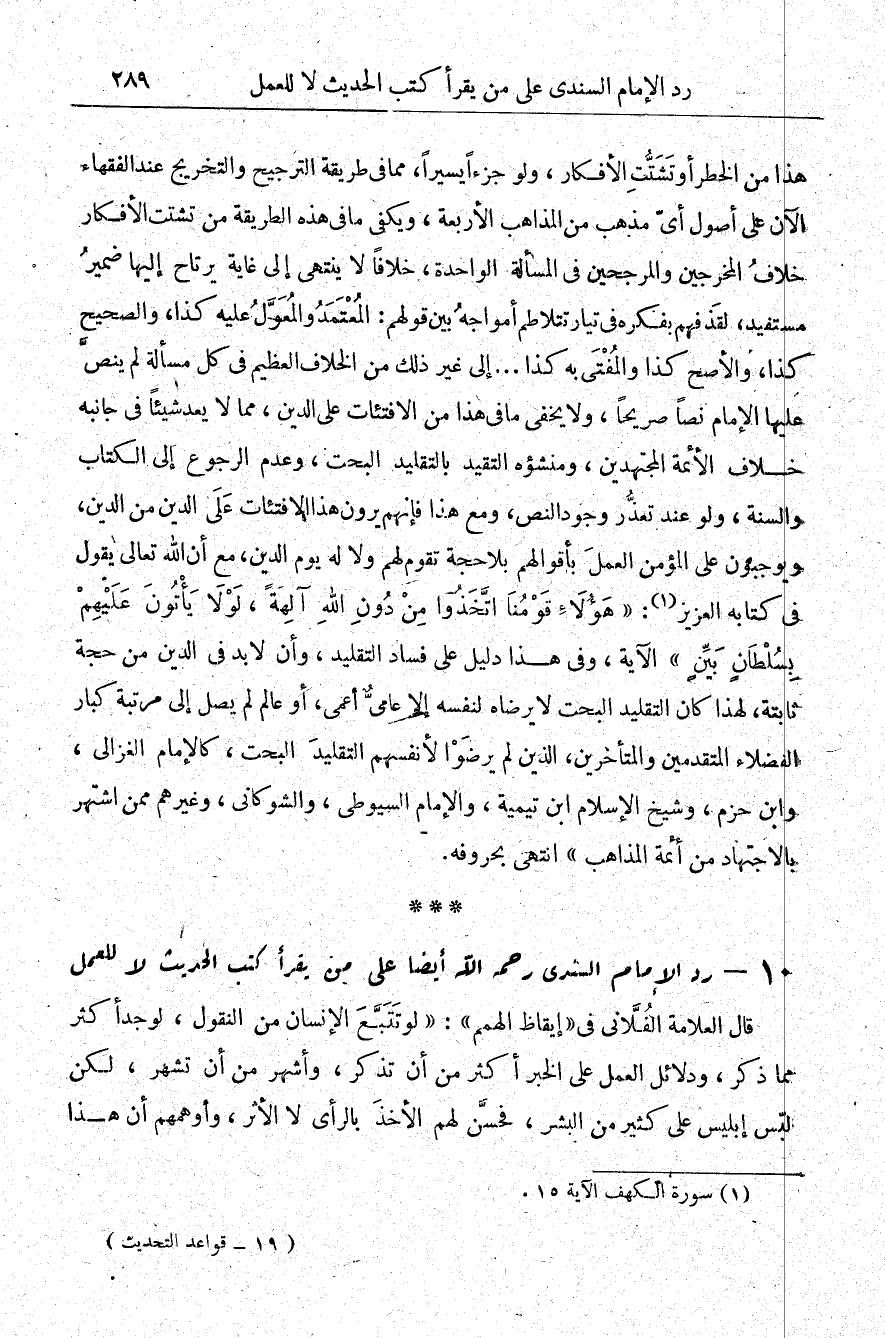 رد الإمام السندى على من يقرأ كتب الحديث لا للعمل ٢٨٩
هذا من الخطر أو تَشَتُّتِ الأفكار ، ولو جزءاً يسيراً، مما فى طريقة الترجيح والتخريج عند الفقهاء
الآن على أصول أىّ مذهب من المذاهب الأربعة ، ويكفى ما فى هذه الطريقة من تشتت الأفكار
خلافُ المخرجين والمرجحين فى المسألة الواحدة ، خلافاً لا ينتهى إلى غاية يرتاح إليها ضميرُ
مستفيد، لقذفهم بفكره فى تيار تتلاطم أمواجهُ بين قولهم : المُعْتَمَدُ والمُعَوَّلُ عليه كذا، والصحيح
كذا، والأصح كذا والمُفْتَى به كذا ... إلى غير ذلك من الخلاف العظيم فى كل مسألة لم ينصَّ
عليها الإمام نصاً صريحاً ، ولا يخفى ما فى هذا من الافتئات على الدين ، مما لا يعد شيئاً فى جانبه
خلاف الأئمة المجتهدين ، ومنشؤه التقيد بالتقليد البحت ، وعدم الرجوع إلى الكتاب
والسنة ، ولو عند تعذُّر وجود النص، ومع هذا فإنهم يرون هذا الافتئات عَلَى الدين من الدين،
ويوجبون على المؤمن العملَ بأقوالهم بلا حجة تقوم لهم ولا له يوم الدين، مع أن الله تعالى يقول
فى كتابه العزيز(١) : « هَؤُلَاءِ قَوْمُنَا اتَّخَذُوا مِنْ دُونِ اللهِ آلِهَةً ، لَوْلَا يَأْتُونَ عَلَيْهِمْ
بِسُلْطَانٍ بَيِّنٍ » الآية ، وفى هذا دليل على فساد التقليد ، وأن لابد فى الدين من حجة
ثابتة، لهذا كان التقليد البحت لا يرضاه لنفسه إلا عامىٌّ أعمى، أو عالم لم يصل إلى مرتبة كبار
الفضلاء المتقدمين والمتأخرين، الذين لم يرضَوْا لأنفسهم التقليدَ البحت ، كالإمام الغزالى ،
وابن حزم ، وشيخ الإسلام ابن تيمية ، والإمام السيوطى ، والشوكانى ، وغيرهم ممن اشتهر
بالاجتهاد من أئمة المذاهب » انتهى بحروفه.
***
١٠ – رد الإمام السندى رحمه الله أيضا على من يقرأ كتب الحديث لا للعمل
قال العلامة الفُلَّانى فى «إيقاظ الهمم» : « لو تَتَبَّعَ الإنسان من النقول ، لوجد أكثر
مما ذكر ، ودلائل العمل على الخبر أكثر من أن تذكر ، وأشهر من أن تشهر ، لكن
لبّس إبليس على كثير من البشر ، فحسَّن لهم الأخذَ بالرأى لا الأثر ، وأوهمهم أن هذا
(١) سورة الكهف الآية ١٥ .
( ١٩ – قواعد التحديث )